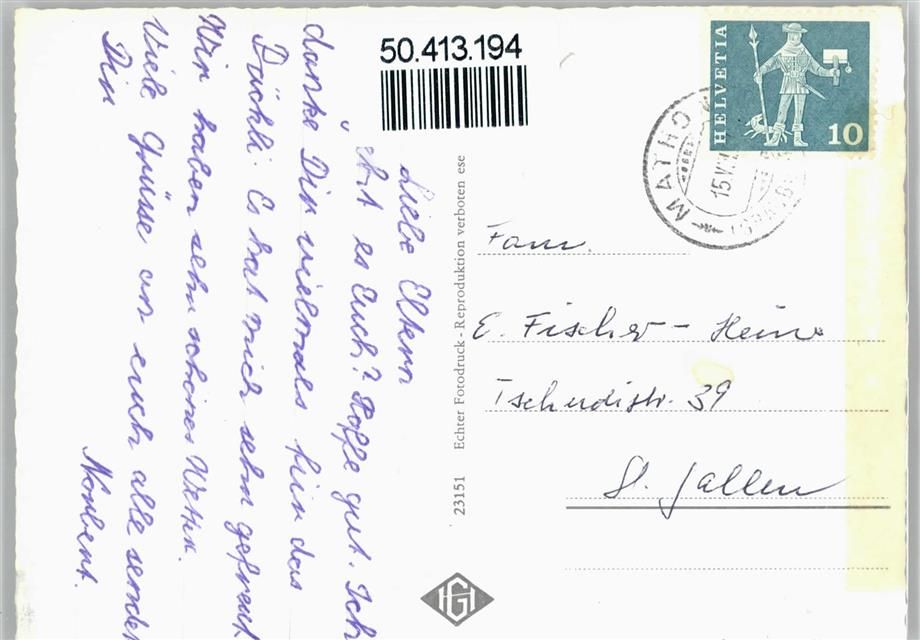 50.413.194
Liebe Eltern
geht es Euch? Hoffe gut. Ich
danke Dir vielmals für das
Päckli. Es hat mich sehr gefreut
Wir haben sehr schönes Wetter.
Viele Grüsse an euch alle sendet
Norbert.
23151 Echter Fotodruck - Reproduktion verboten ese
HELVETIA
10
MATRO
15.V
Fam.
E. Fischer - Heine
Tschudistr. 39
St. Gallen